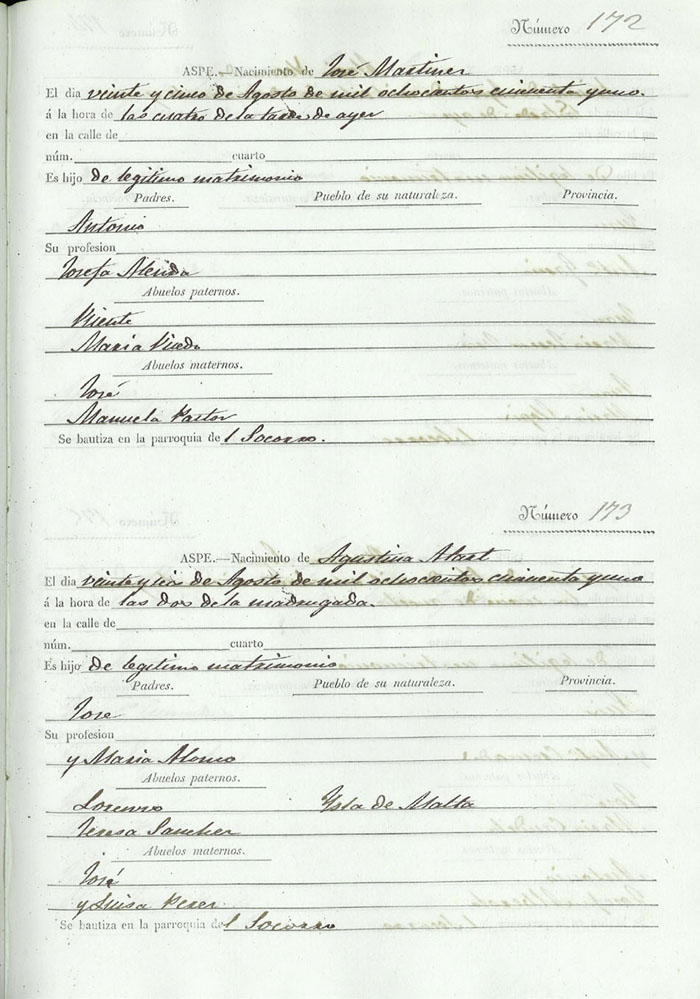 Número 172
ASPE.—Nacimiento de José Martinez
El dia veinte y cinco de Agosto de mil ochocientos cincuenta y uno.
á la hora de las cuatro de la tarde de ayer
en la calle de
núm. cuarto
Es hijo de legitimo matrimonio
Padres. Pueblo de su naturaleza. Provincia.
Antonio
Su profesion
Josefa
Abuelos paternos.
Vicente
Maria
Abuelos maternos.
José
Manuela Pastor
Se bautiza en la parroquia del Socorro.
Número 173
ASPE.—Nacimiento de Agustina
El dia veinte y seis de Agosto de mil ochocientos cincuenta y uno
á la hora de las dos de la madrugada.
en la calle de
núm. cuarto
Es hijo de legitimo matrimonio
Padres. Pueblo de su naturaleza. Provincia.
José
Su profesion
y Maria Alonso
Abuelos paternos.
Lorenzo Ysla de Malta
Teresa Sanchez
Abuelos maternos.
José
y Luisa Perez
Se bautiza en la parroquia del Socorro